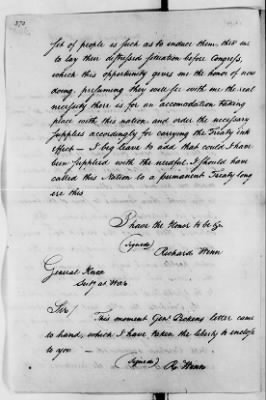 372
set of people is such as to induce them, thro me
to lay their distressed situation before Congress,
which this opportunity gives me the honor of now
doing, presuming they will see with me the real
necessity there is for an accomodation taking
place with this nation and order the necessary
supplies accordingly for carrying the Treaty into
effect — I beg leave to add that could I have
been supplied with the needful, I should have
called this Nation to a permanent Treaty long
ere this
I have the Honor to be &c
(Signed)
Richard Winn
General Knox
Secy at War
Sir/
This moment Genl. Pickens letter came
to hand, which I have taken the liberty to enclose
to you —
(Signed) R. Winn